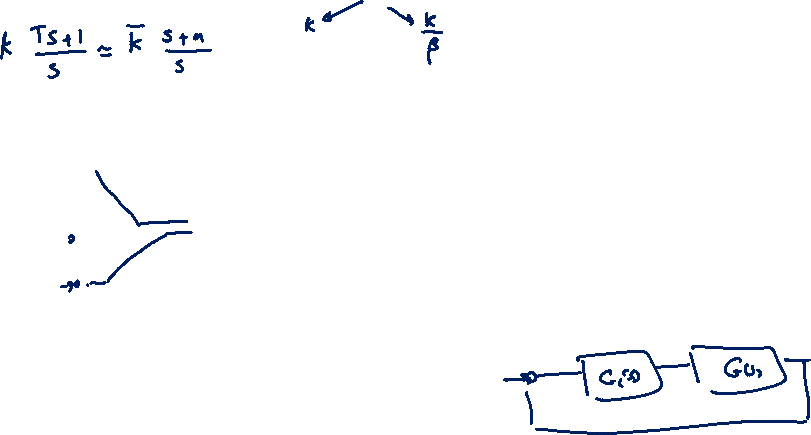 k (Ts+1)/s ≃ k̄ (s+a)/s
k k/β
Gc(s) G(s)